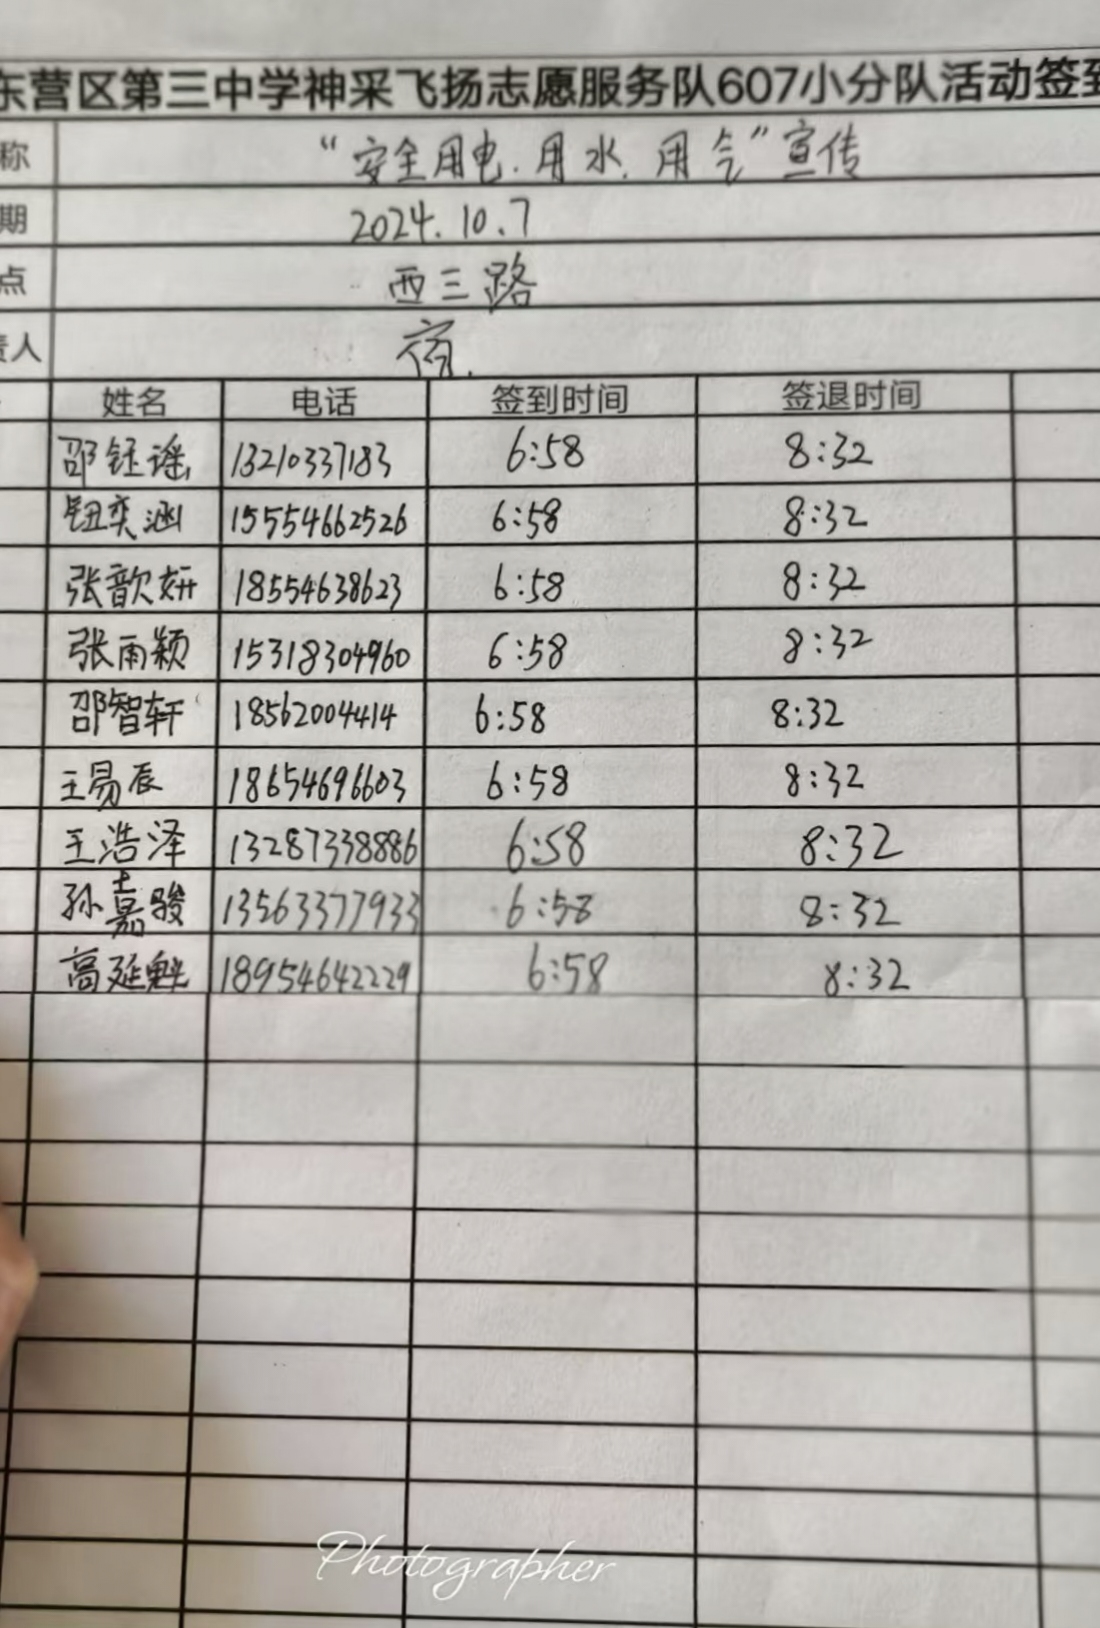 东营区第三中学神采飞扬志愿服务队607小分队活动签到
称 “安全用电.用水.用气”宣传
期 2024.10.7
点 西三路
责人
姓名 电话 签到时间 签退时间
邵钰谣 13210337183 6:58 8:32
钮奕涵 15554662526 6:58 8:32
张歆妍 18554638623 6:58 8:32
张雨颖 15318304960 6:58 8:32
邵智轩 18562004414 6:58 8:32
王易辰 18654696603 6:58 8:32
王浩泽 13287338886 6:58 8:32
孙嘉骏 13563377933 6:58 8:32
高延魁 18954642229 6:58 8:32
Photographer